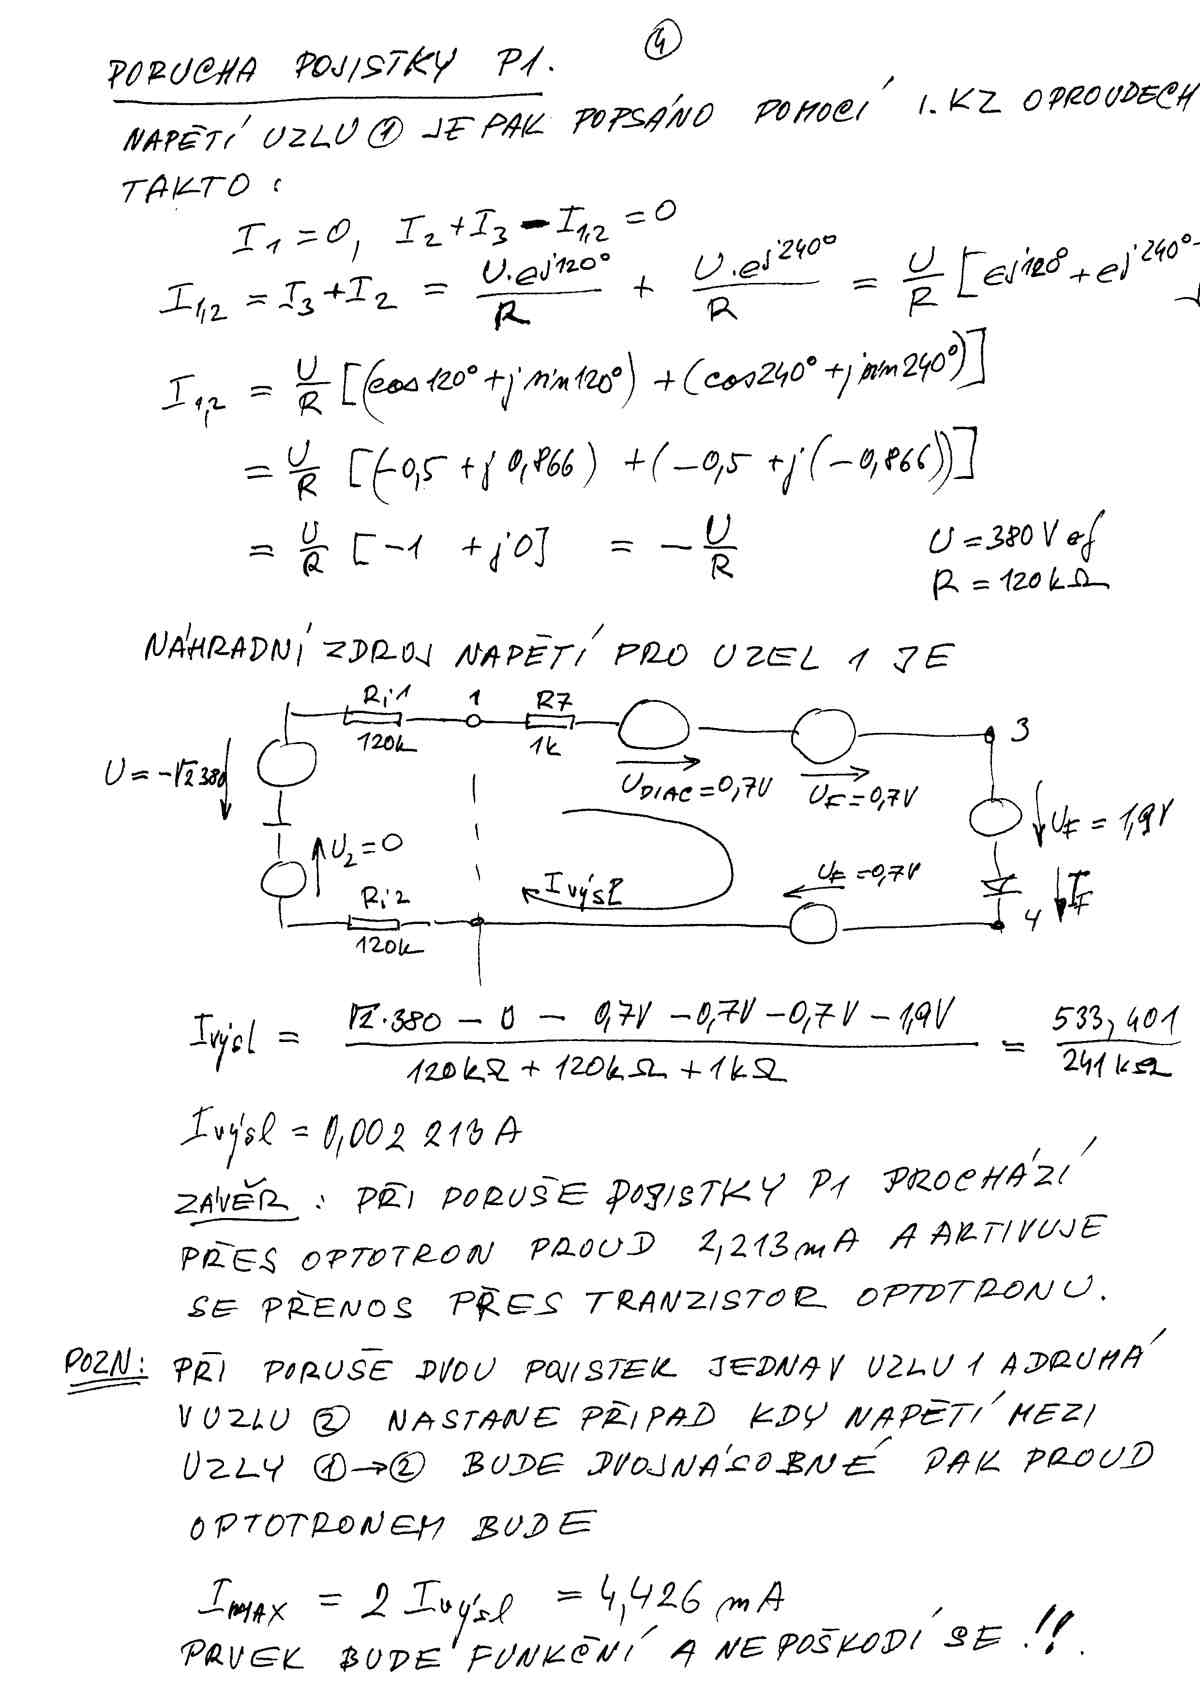 4
PORUCHA POJISTKY P1.
NAPĚTÍ UZLU 1 JE PAK POPSÁNO POMOCÍ 1.KZ O PROUDECH
TAKTO:
I1 = 0, I2 + I3 - I1,2 = 0
I1,2 = I3 + I2 = U.ej120°/R + U.ej240°/R = U/R [ej120° + ej240°
I1,2 = U/R [(cos120° + j sin120°) + (cos240° + j sin240°)]
= U/R [(-0,5 + j 0,866) + (-0,5 + j(-0,866))]
= U/R [-1 + j0] = - U/R
U = 380 V ef
R = 120kΩ
NÁHRADNÍ ZDROJ NAPĚTÍ PRO UZEL 1 JE
Ri1 1 R7
120k 1k 3
U = -√2 380
UDIAC = 0,7V UF = 0,7V
UF = 1,9V
U2 = 0
Ivýsl
UF = 0,7V
IF
Ri2
120k
4
Ivýsl = √2.380 - 0 - 0,7V - 0,7V - 0,7V - 1,9V / 120kΩ + 120kΩ + 1kΩ = 533,401 / 241kΩ
Ivýsl = 0,002 213 A
ZÁVĚR: PŘI PORUŠE POJISTKY P1 PROCHÁZÍ
PŘES OPTOTRON PROUD 2,213mA A ARTIVUJE
SE PŘENOS PŘES TRANZISTOR OPTOTRONU.
POZN: PŘI PORUŠE DVOU POJISTEK JEDNA V UZLU 1 A DRUHÁ
V UZLU 2 NASTANE PŘIPAD KDY NAPĚTÍ MEZI
UZLY 1→2 BUDE DVOJNÁSOBNÉ PAK PROUD
OPTOTRONEM BUDE
IMAX = 2 Ivýsl = 4,426 mA
PRVEK BUDE FUNKČNÍ A NEPOŠKODÍ SE !!.